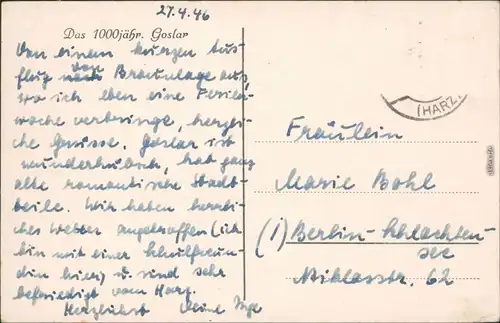 27.4.46
Das 1000jähr. Goslar
Von einem kurzen Aus-
flug von Braunlage aus,
wo ich eben eine Ferien-
woche verbringe, herzli-
che Grüsse. Goslar ist
wunderhübsch, hat ganz
alte romantische Stadt-
teile. Wir haben herrli-
ches Wetter angetroffen (ich
bin mit einer Schulfreun-
din hier) u. sind sehr
befriedigt vom Harz.
Herzlichst Deine Inge
(HARZ)
Fräulein
Marie Bohl
(1) Berlin-Schlachten-
see
Niklasstr. 62